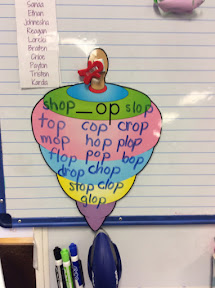 Sanaa
Ethan
Johnesha
Reagan
Lorcki
Braden
Chloe
Payton
Triston
Kardia
shop _op slop
top cop crop
mop hop plop
flop pop bop
drop chop
stop clop
glop